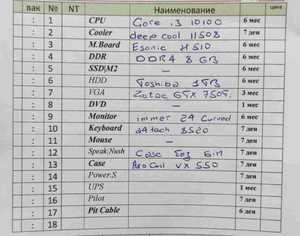 вак № NT Наименование цена
: 1 CPU Core i3 10100 6 мес
: 2 Cooler deep cool 11508 7 ден
: 3 M.Board Esonic H510 6 мес
: 4 DDR DDR4 8 GB 6 мес
: 5 SSD|M2 — 6 мес
: 6 HDD Toshiba 1TB 6 мес
: 7 VGA Zotac GTX 750ti 3 мес
: 8 DVD — 1 мес
: 9 Monitor immer 24 Curved 6 мес
: 10 Keyboard 8520 7 ден
: 11 Mouse — 7 ден
: 12 Speak.Nush Case 6in 7 ден
: 13 Case AeroCool VX 550 7 ден
: 14 Power.S 7 ден
: 15 UPS 1 мес
: 16 Pilot 7 ден
: 17 Pit Cable 6 ден
: 18